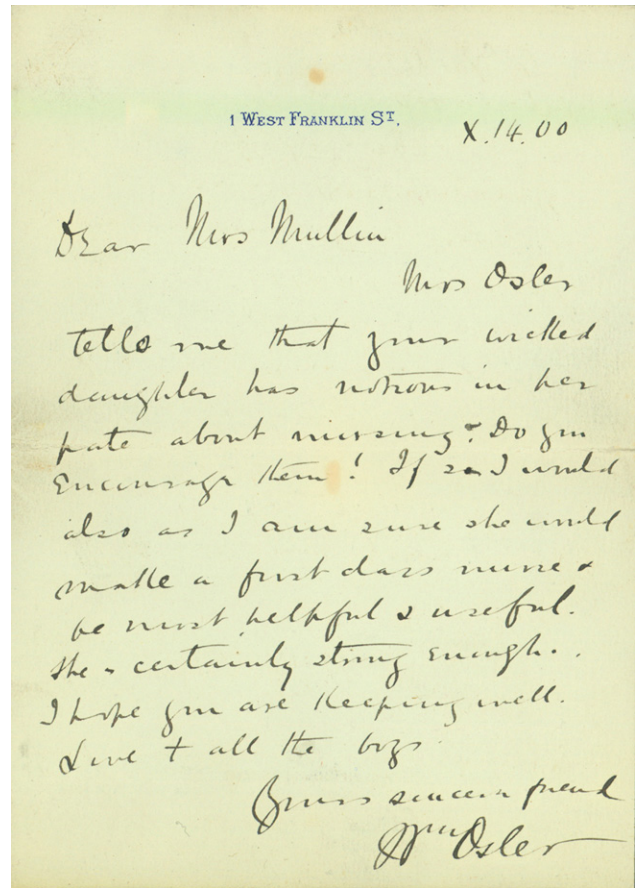 1 WEST FRANKLIN ST.
X.14.00
Dear Mrs Mullin
Mrs Osler
tells me that your wicked
daughter has notions in her
pate about nursing? Do you
Encourage them! If so I would
also as I am sure she would
make a first class nurse &
be most helpful & useful.
She is certainly strong Enough.
I hope you are Keeping well.
Love to all the boys
Yours sincere friend
Wm Osler